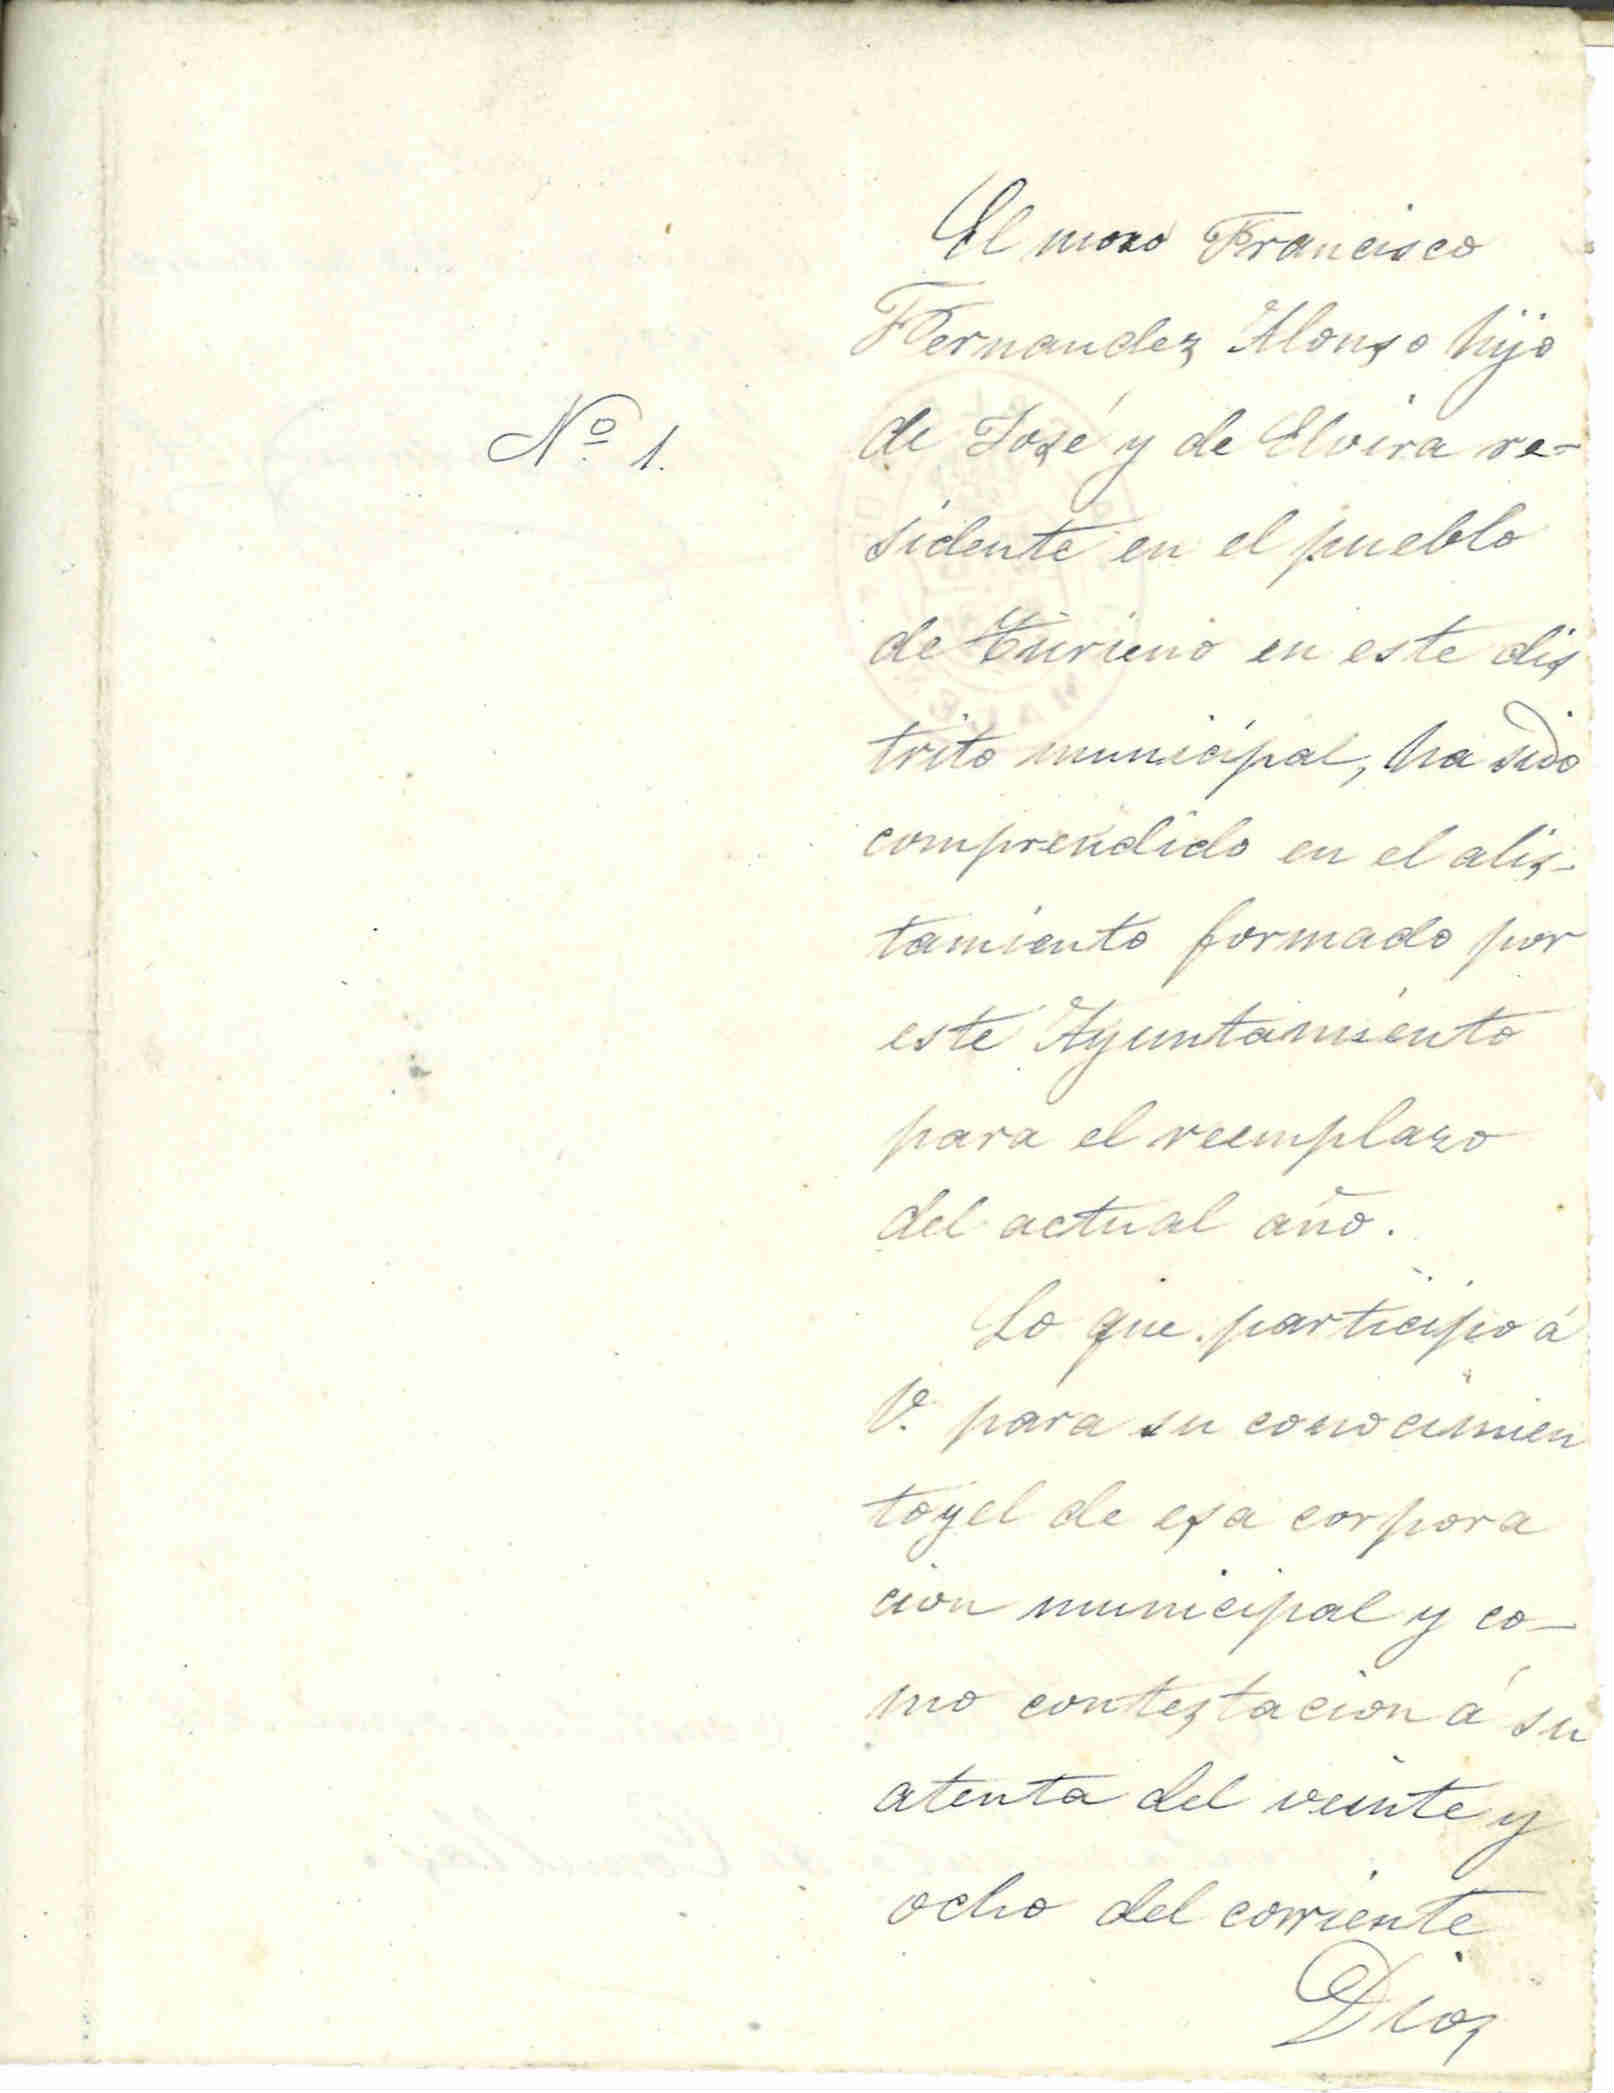 El mozo Francisco
Fernandez Alonso hijo
Nº 1.
de José y de Elvira re-
sidente en el pueblo
de Turieno en este dis
trito municipal, ha sido
comprendido en el alis-
tamiento formado por
este Ayuntamiento
para el reemplazo
del actual año.
Lo que participo á
V. para su conocimien
to y el de esa corpora
cion municipal y co-
mo contestacion á su
atenta del veinte y
ocho del corriente
Dios